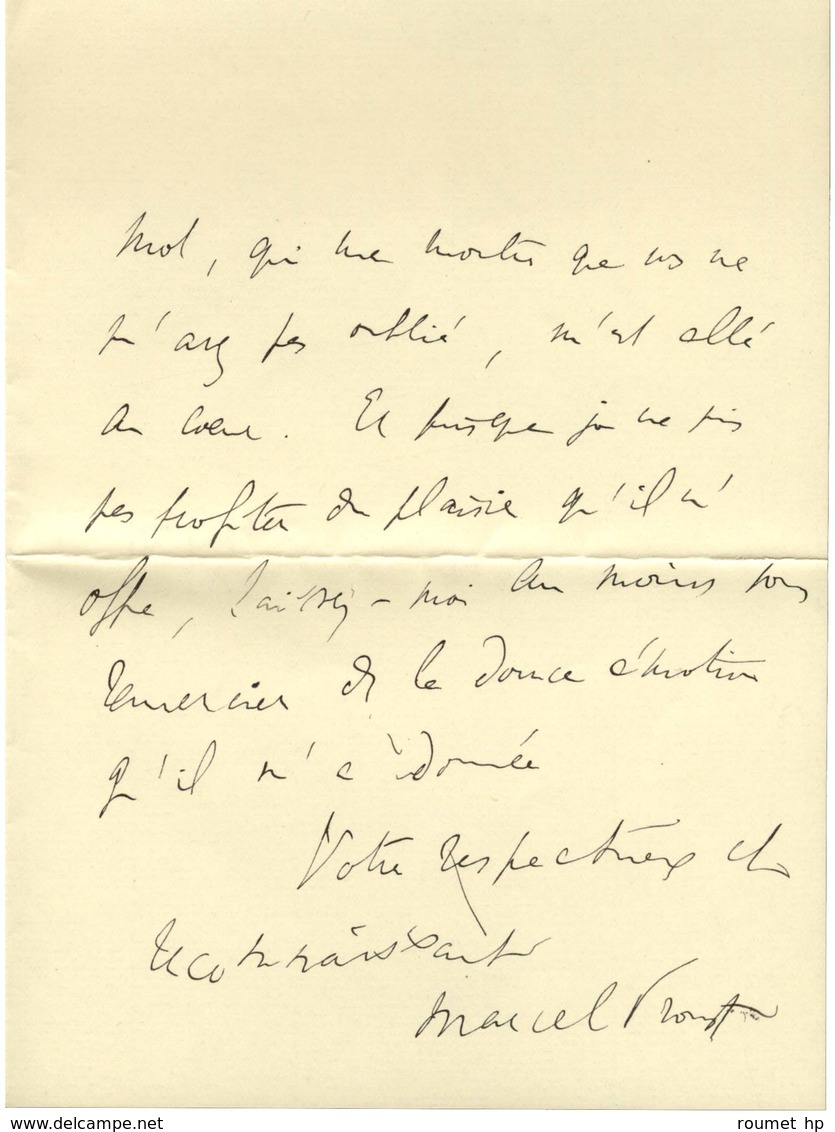 mot, qui me montre que vs ne
m'avez pas oublié, m'est allé
au coeur. Et puisque je ne puis
pas profiter du plaisir qu'il m'
offre, laissez-moi au moins vous
remercier de la douce émotion
qu'il m'a donnée
Votre respectueux et
reconnaissant
Marcel Proust
delcampe.net
roumet hp